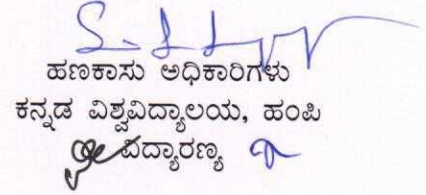 ಹಣಕಾಸು ಅಧಿಕಾರಿಗಳು
ಕನ್ನಡ ವಿಶ್ವವಿದ್ಯಾಲಯ, ಹಂಪಿ
ವಿದ್ಯಾರಣ್ಯ